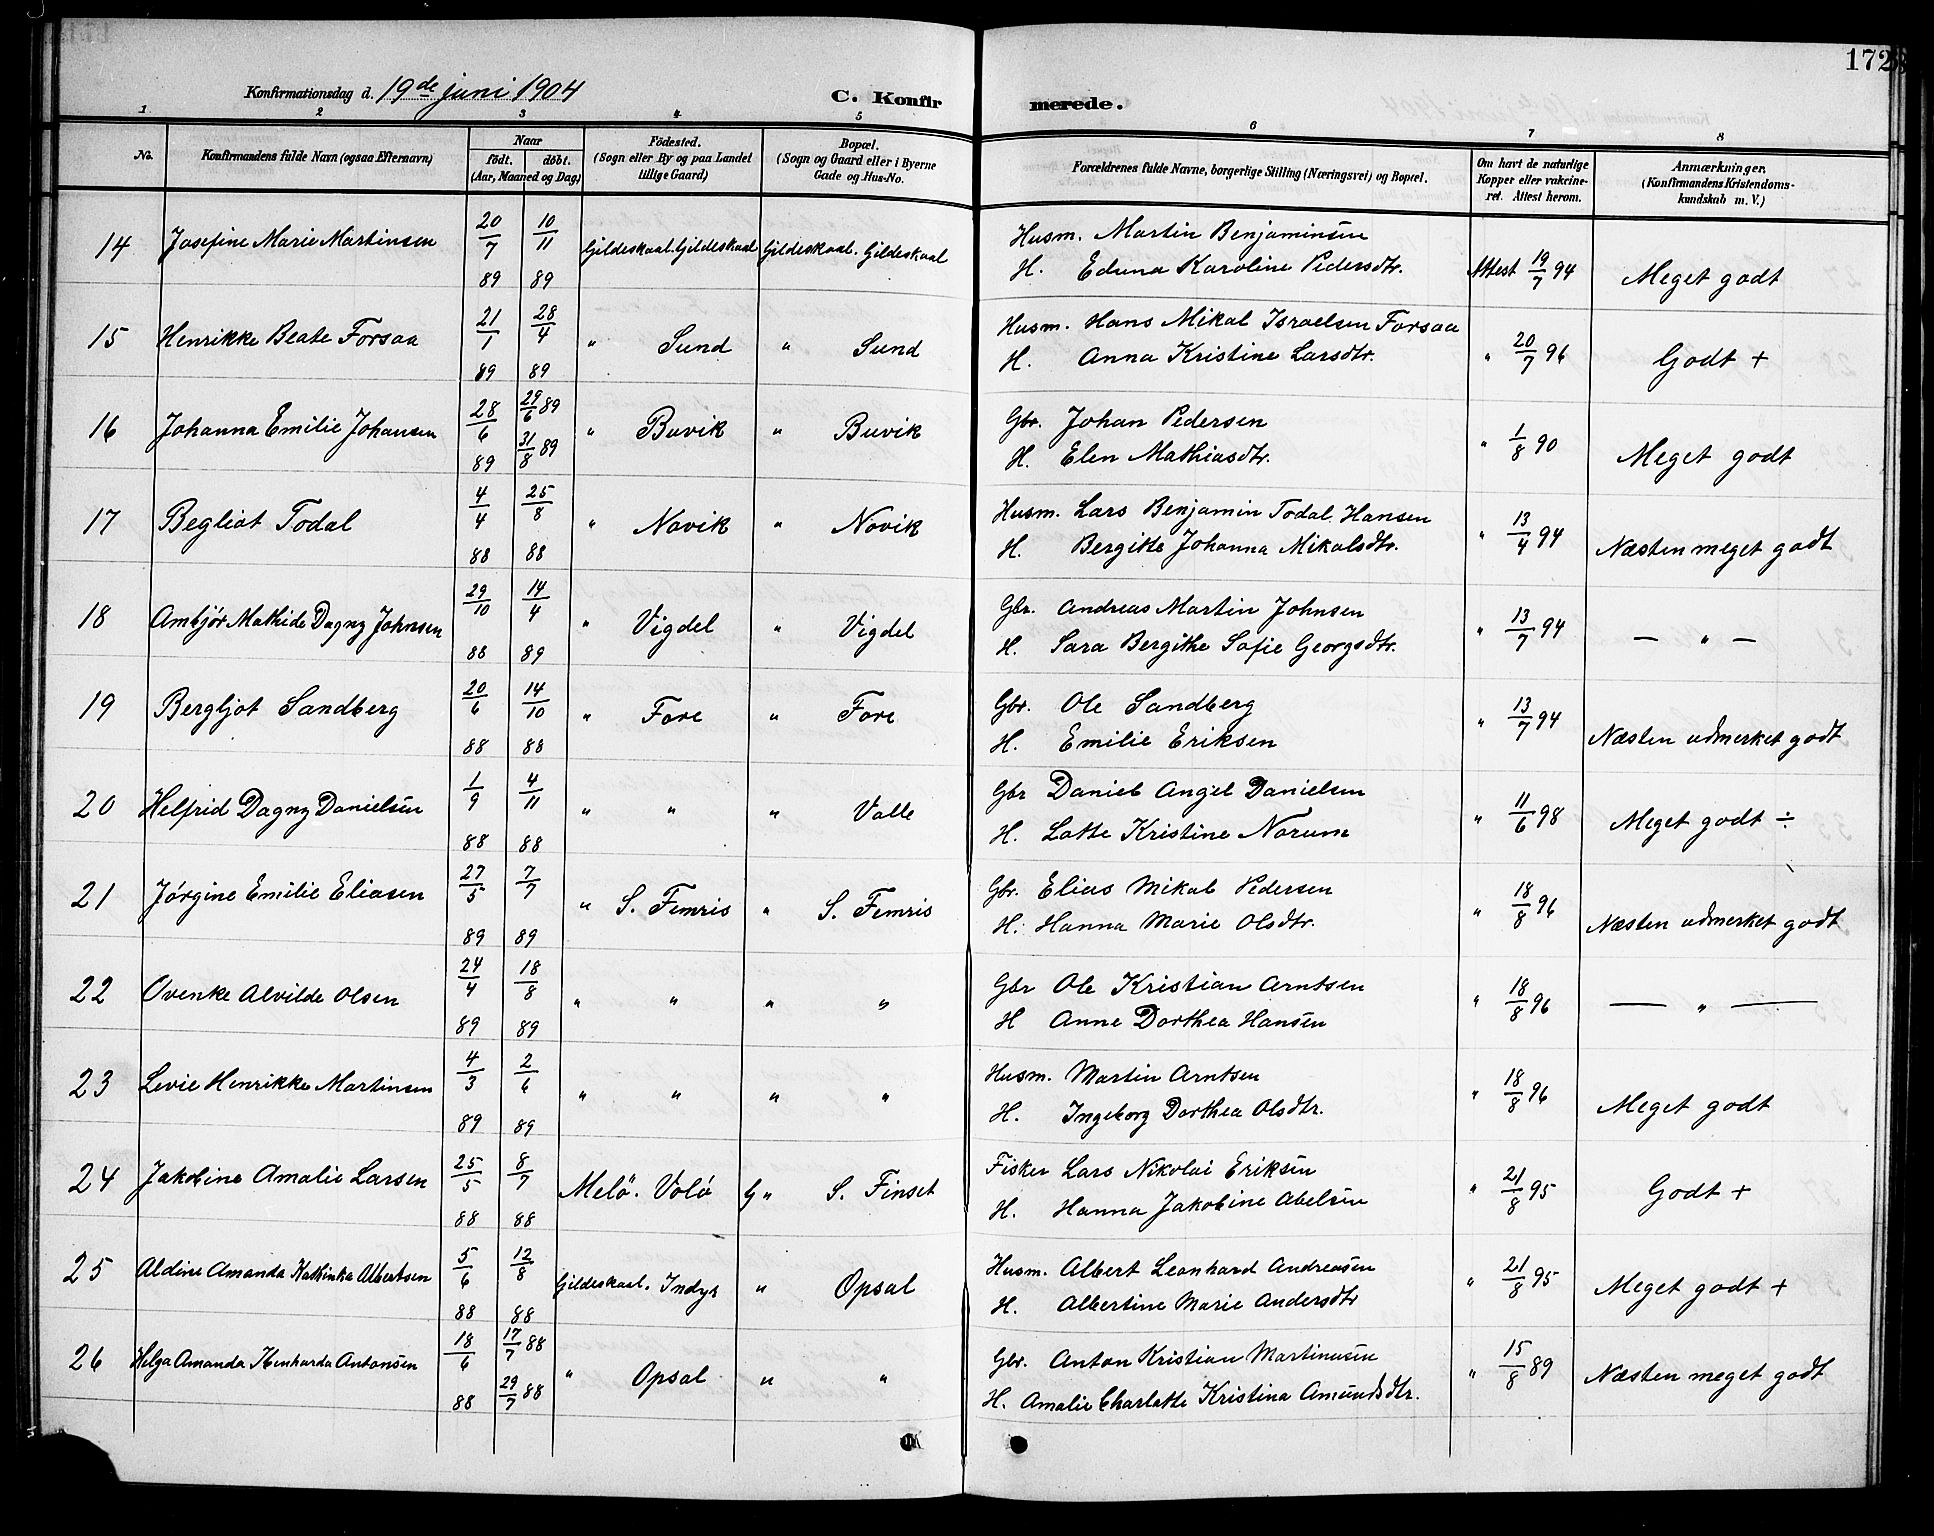 172
Konfirmationsdag d. 19de juni 1904
C. Konfirmerede.
1 2 3 4 5 6 7 8
No. | Konfirmandens fulde Navn (ogsaa Efternavn) | Naar født. døbt. (Aar, Maaned og Dag) | Fødested. (Sogn eller By og paa Landet tillige Gaard) | Bopæl. (Sogn og Gaard eller i Byerne Gade og Hus-No. | Forældrenes fulde Navne, borgerlige Stilling (Næringsvei) og Bopæl. | Om havt de naturlige Kopper eller vakcineret. Attest herom. | Anmærkninger. (Konfirmandens Kristendomskundskab m. V.)
14 Josefine Marie Martinsen 20/7 89 10/11 89 Gildeskaal. Gildeskaal Gildeskaal. Gildeskaal Husm. Martin Benjaminsen
H. Edvna Karoline Pedersdtr. Attest 19/7 94 Meget godt
15 Henrikke Beate Forsaa 21/1 89 28/4 89 " Sund " Sund Husm. Hans Mikal Israelsen Forsaa
H. Anna Kristine Larsdtr. " 20/7 96 Godt +
16 Johanna Emilie Johansen 28/6 89 29/6 89 31/8 89 " Buvik " Buvik Gbr. Johan Pedersen
H. Elen Mathiasdtr. " 1/8 90 Meget godt
17 Begliot Todal 4/4 88 25/8 88 " Novik " Novik Husm. Lars Benjamin Todal Hansen
H. Bergitte Johanna Mikalsdtr. " 13/4 94 Næsten meget godt
18 Ambjør Mathide Dagny Johnsen 29/10 88 14/4 89 " Vigdel " Vigdel Gbr. Andreas Martin Johnsen
H. Sara Bergithe Sofie Georgsdtr. " 13/7 94 — " —
19 Bergljot Sandberg 20/6 88 14/10 88 " Fore " Fore Gbr. Ole Sandberg
H. Emilie Eriksen " 13/7 94 Næsten udmerket godt
20 Helfrid Dagny Danielsen 1/9 88 4/11 88 " " " Valle Gbr Daniel Angel Danielsen
H. Lotte Kristine Norum " 11/6 98 Meget godt ÷
21 Jørgine Emilie Eliasen 27/5 89 7/7 89 " S. Femris " S. Femris Gbr. Elias Mikal Pedersen
H. Hanna Marie Olsdtr. " 18/8 96 Næsten udmerket godt
22 Ovenke Alvilde Olsen 24/4 89 18/8 89 " " " " Gbr Ole Kristian Arntsen
H Anne Dorthea Hansen " 18/8 96 — " —
23 Levie Henrikke Martinsen 4/3 89 2/6 89 " " " " Husm. Martin Arntsen
H. Ingeborg Dorthea Olsdtr. " 18/8 96 Meget godt
24 Jakobine Amalie Larsen 25/5 88 8/7 88 Melö. Volö G " S. Finset Fisker Lars Nikolai Eriksen
H. Hanna Jakobine Abelsen " 21/8 95 Godt +
25 Aldine Amanda Kathinka Albertsen 5/6 88 12/8 88 Gildeskaal. Indyr " Opsal Husm. Albert Leonhard Andreasen
H. Albertine Marie Andersdtr " 21/8 95 Meget godt +
26 Helga Amanda Kenharda Antonsen 18/6 88 17/7 88 29/7 88 " Opsal " " Gbr. Anton Kristian Martinusen
H. Amalie Charlotte Kristina Amundsdtr. " 15/8 89 Næsten meget godt